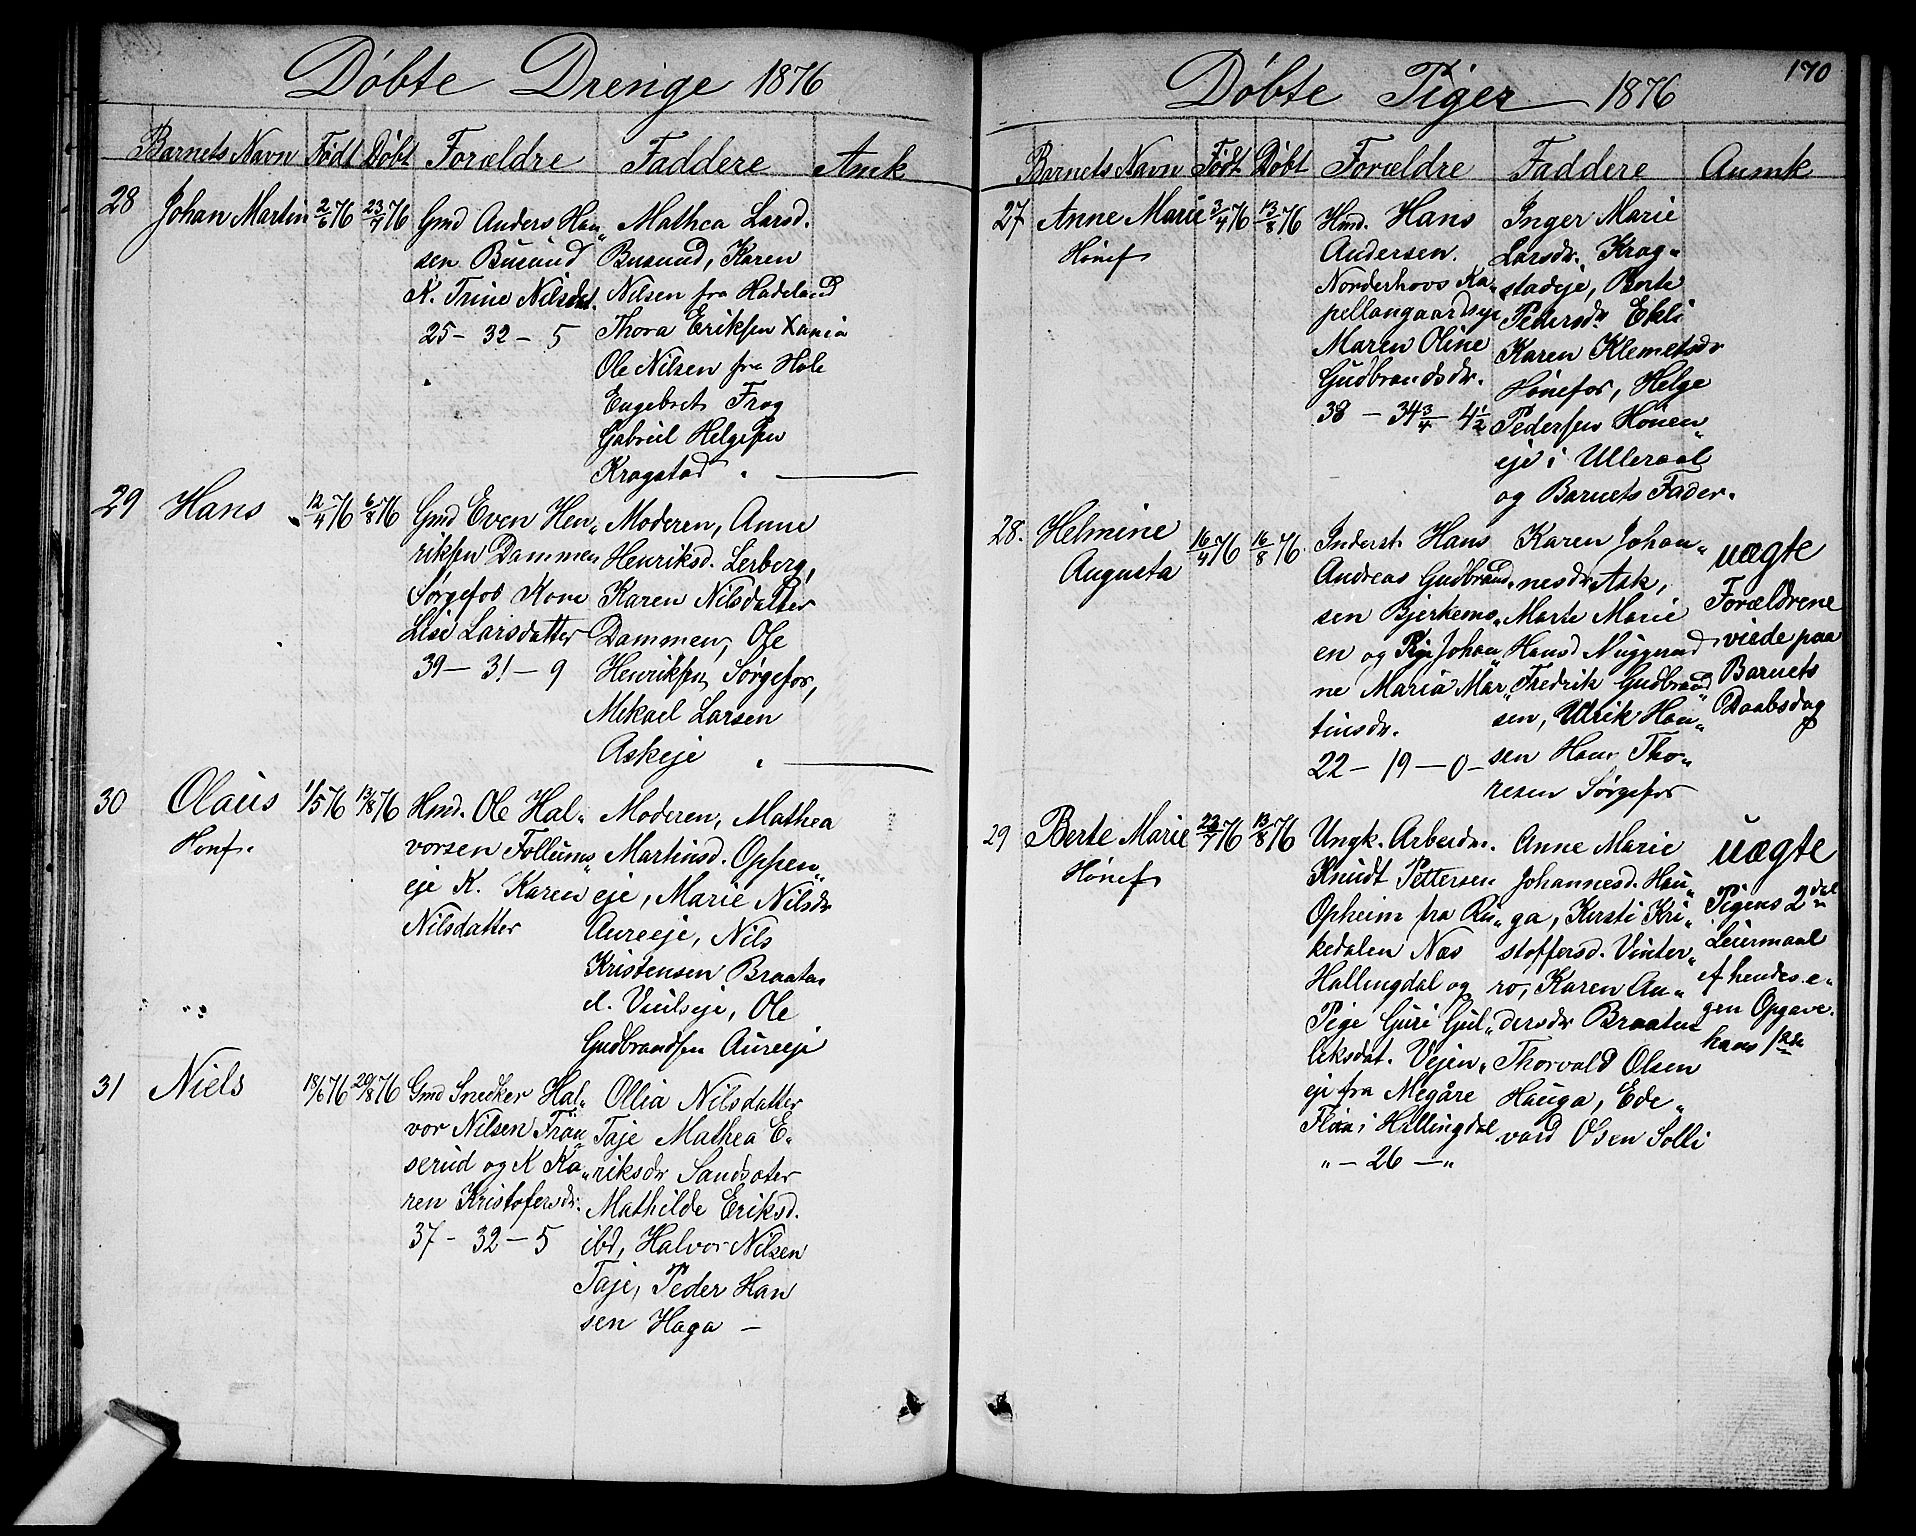 Döbte Drenge 1876
Barnets Navn Födt Döbt Forældre Faddere Amk
28 Johan Martin 2/6 76 23/7 76
Gmd Anders Han„
sen Busund
K. Trine Nilsdat.
25 - 32 - 5
Mathea Larsd.
Busund, Karen
Nilsen fra Hadeland
Thora Eriksen Xania
Ole Nilsen fra Hole
Engebret Frog
Gabriel Helgesen
Kragstad
29 Hans 12/4 76 6/8 76
Gmd Even Hen„
riksen Dammen
Sørgefos Kone
Lise Larsdatter
39 - 31 - 9
Moderen, Anne
Henriksd. Lerberg,
Karen Nilsdatter
Dammen, Ole
Henriksen Sørgefos,
Mikael Larsen
Askeje
30 Olaus 1/5 76 13/8 76
Honf.
Hmd. Ole Hal„
vorsen Follums„
eje K. Karen
Nilsdatter
Moderen, Mathea
Martinsd. Oppen„
eje, Marie Nilsdr
Aureeje, Nils
Kristensen Braaten
Ole
Gudbrandsen Aureeje
31 Niels 18/6 76 20/8 76
Gmd Snedker Hal„
vor Nilsen Frøu
serud og K Ka„
ren Kristofersdr.
37 - 32 - 5
Ollia Nilsdatter
Taje Mathea E„
riksdr Sandsoter
Mathilde Eriksd.
ibd, Halvor Nilsen
Taje, Peder Han
sen Haga -
170
Döbte Piger 1876
Barnets Navn Födt Döbt Forældre Faddere Anmk
27 Anne Marie 3/4 76 13/8 76
Hönef
Hmd. Hans
Andersen.
Norderhovs Ka„
pellangaardseje
Maren Oline
Gudbrandsdr.
38 - 34 3/4 - 4 1/2
Inger Marie
Larsdr. Krag„
stadeje, Berte
Pedersdr Ekli
Karen Klemetsdr
Hönefos, Helge
Pedersen Hönen„
eje i Ulleraal
og Barnets Fader.
28. Helmine 16/4 76 16/8 76.
Augusta
Inderst Hans
Andreas Gudbrand„
sen Bjerkems„
en og Pige Johan„
ne Maria Mar„
tinsdr.
22 - 19 - 0 -
Karen Johan„
nesdr Ask,
Marte Marie
Hansd Muggerud
Fredrik Gudbrand„
sen, Ulrik Han„
sen Hans Tho„
resen Sørgefos
uægte
Forældrene
viede paa
Barnets
Daabsdag
29 Berte Marie 22/7 76 13/8 76
Hönef
Ungk. Arbeidr.
Knudt Pettersen
Opheim fra Ru„
kedalen Næs
Hallingdal og
Pige Guri Gul„
leksdat. Vejen„
eje fra Megåre
Flaa i Hallingdal
„ - 26 - „
Anne Marie
Johannesd. Hau„
ga, Kersti Kri„
stoffersd. Vinter„
ro, Karen An„
dersdr Braaten
Thorvald Olsen
Hauga, Ede„
vard Olsen Solli
uægte
Pigens 2det
Leiermaal
ef hendes e„
gen Opgave.
hans 1ste